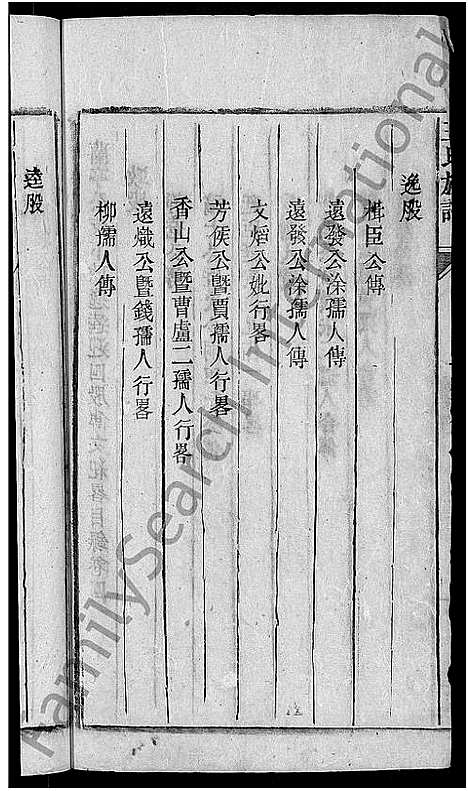 王氏族譜
逸股
楫臣公傳
遠發公涂孺人傳
遠發公涂孺人傳
文熖公妣行畧
芳侯公暨賈孺人行畧
香山公暨曹盧二孺人行畧
遠熾公暨錢孺人行畧
柳孺人傳
逵股
FamilySearch International